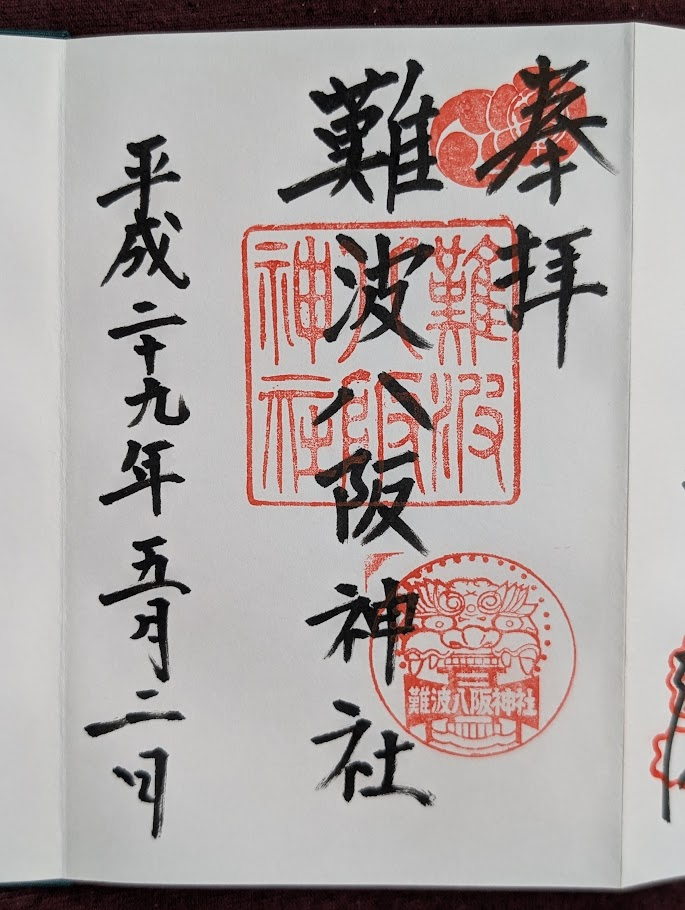 奉拝
難波八阪神社
難波
八阪
神社
難波八阪神社
平成二十九年五月二日